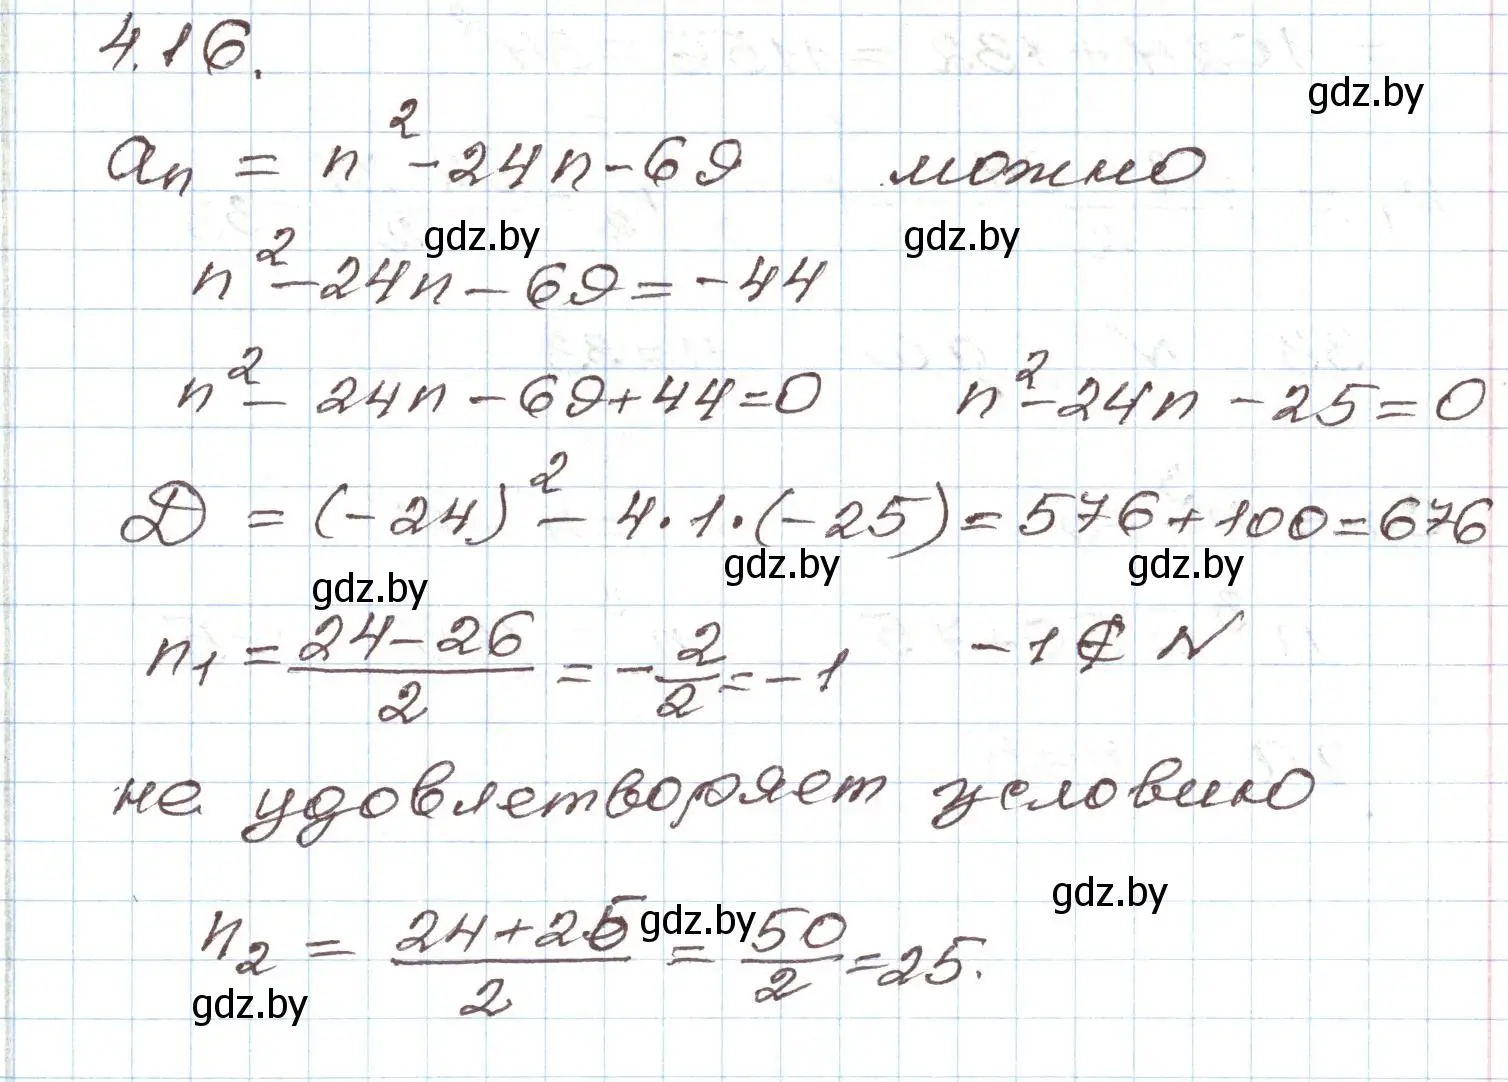 4.16.
gdz.by
aₙ = n² - 24n - 69 можно
gdz.by gdz.by
n² - 24n - 69 = -44
n² - 24n - 69 + 44 = 0 n² - 24n - 25 = 0
D = (-24)² - 4·1·(-25) = 576 + 100 = 676
gdz.by gdz.by gdz.by
n₁ = (24 - 26)/2 = -2/2 = -1 -1 ∉ N
не удовлетворяет условию
gdz.by
n₂ = (24 + 26)/2 = 50/2 = 25.
gdz.by
gdz.by